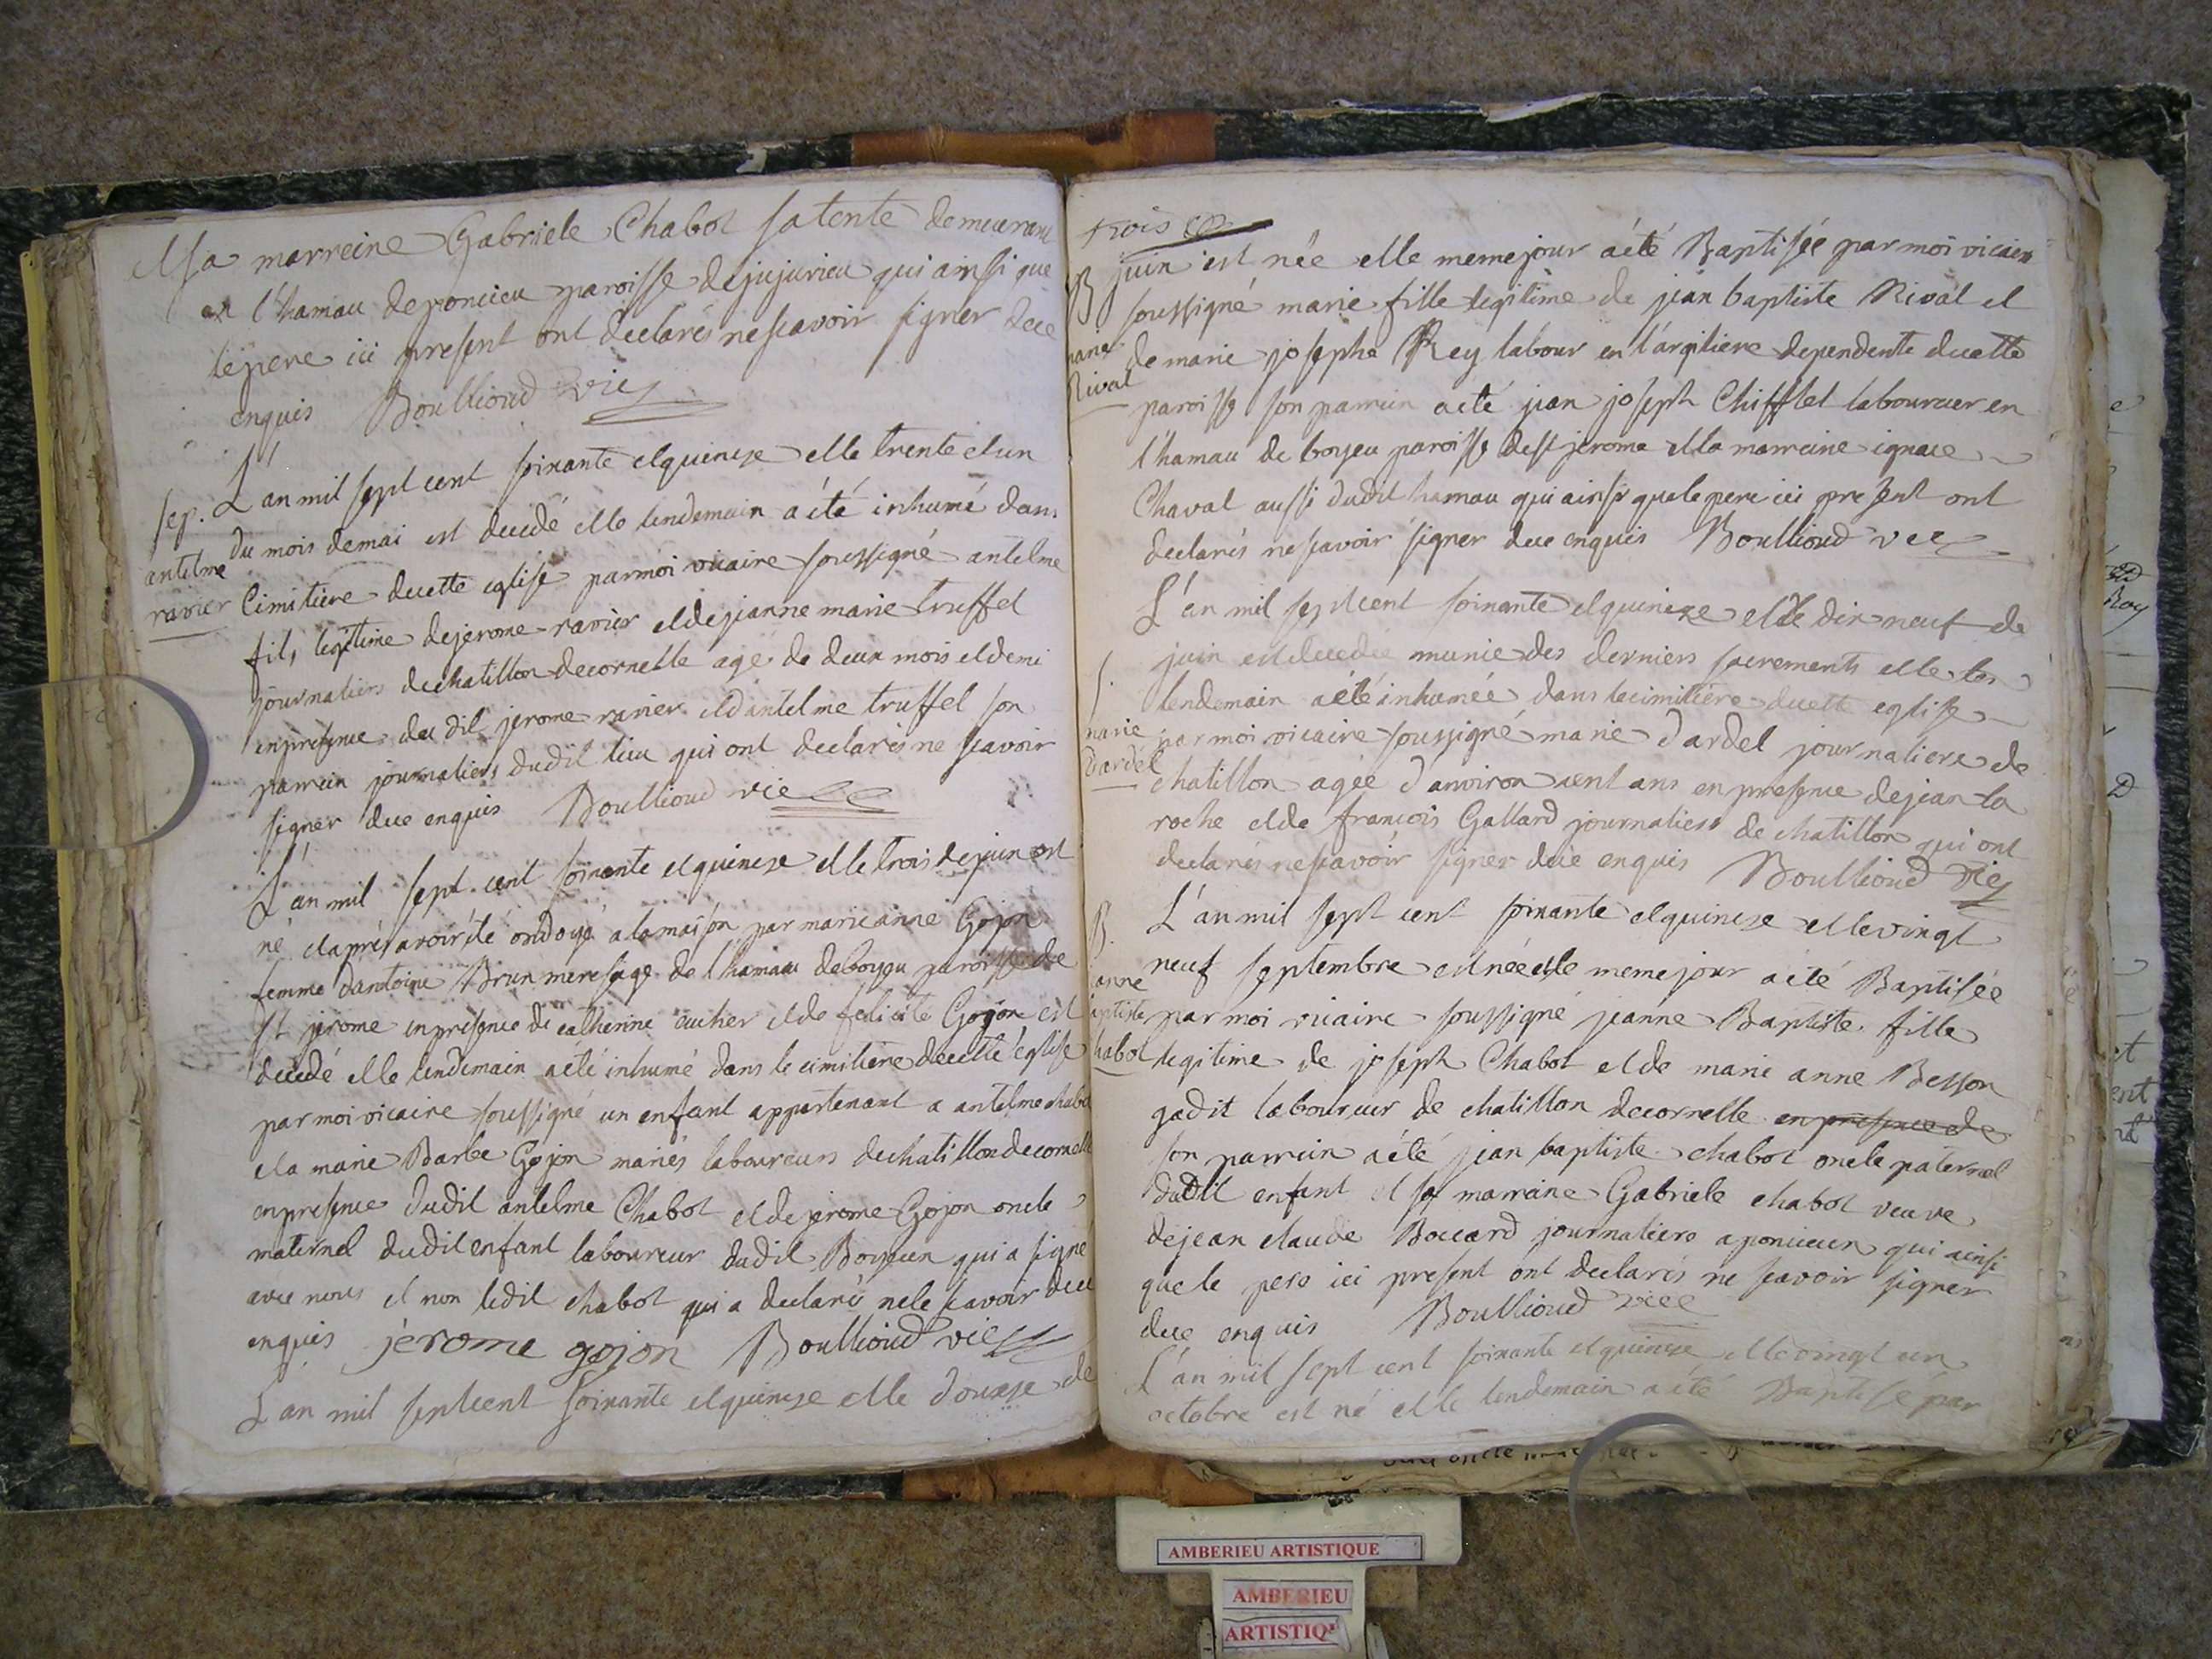 et sa marreine Gabriele Chabot sa tente demeurant
en l'hamau de poncieu paroisse de jujurieu qui ainsi que
le pere ici present ont declarés ne scavoir signer dece
enquis Boullioud vic
L'an mil sept cent soixante et quinze et le trente et un
sep. du mois de mai est decedé et le lendemain a été inhumé dans
antelme
ravier
Cimitiere de cette eglise par moi vicaire soussigné antelme
fils legitime de jerome ravier et de jeanne marie truffet
journaliers de chatillon de cornelle agé de deux mois et demi
en presence du dit jerome ravier et d'antelme truffet son
parrein journaliers dudit lieu qui ont declarés ne scavoir
signer dece enquis Boullioud vic
L'an mil sept cent soixante et quinze et le trois de juin est
né et aprés avoir été ondoyé a la maison par marie anne Gojon
femme d'antoine Brun mere sage de l'hamau de boyeu paroisse de
st jerome en presence de catherine cucher et de felicité Gojon est
decedé et le lendemain a été inhumé dans le cimitiere de cette eglise
par moi vicaire soussigné un enfant appartenant a antelme chabot
et a marie Barbe Gojon mariés laboureurs de chatillon de cornelle
en presence dudit antelme Chabot et de jerome Gojon oncle
maternel dudit enfant laboureur dudit Boyeux qui a signé
avec nous et non ledit chabot qui a declaré ne le scavoir dece
enquis jerome gojon Boullioud vic
L'an mil sept cent soixante et quinze et le douxze de
trois
B
marie
Rival
juin est née et le meme jour a été Baptisée par moi vicaire
soussigné marie fille legitime de jean baptiste Rival et
de marie josephe Rey labour en l'argiliere dependente de cette
paroisse son parrein a été jean joseph Chifflet laboureur en
l'hamau de boyeu paroisse de st jerome et la marreine ignace
Chaval aussi dudit hamau qui ainsi que le pere ici present ont
declarés ne scavoir signer dece enquis Boullioud vic
L'an mil sept cent soixante et quinze et le dix neuf de
juin est decedée munie des derniers sacrements et le
lendemain a été inhumée dans le cimitiere de cette eglise
S.
marie
Dardel
par moi vicaire soussigné marie Dardel journaliere de
chatillon agée d'anviron cent ans en presence de jean la
roche et de francois Gallard journaliers de chatillon qui ont
declarés ne scavoir signer dece enquis Boullioud vic
L'an mil sept cent soixante et quinze et le vingt
B.
janne
baptiste
chabot
neuf septembre est née et le meme jour a été Baptisée
par moi vicaire soussigné jeanne Baptiste fille
legitime de joseph Chabot et de marie anne Besson
gadit laboureur de chatillon de cornelle en presence de
son parrein a été jean baptiste chabot oncle paternel
dudit enfant et sa marraine Gabriele chabot veuve
de jean claude Boccard journaliere a poncieux qui ainsi
que le pere ici present ont declarés ne scavoir signer
dece enquis Boullioud vic
L'an mil sept cent soixante et quinze et le vingt un
octobre est né et le lendemain a été Baptisé par
AMBERIEU ARTISTIQUE
AMBERIEU
ARTISTIQ